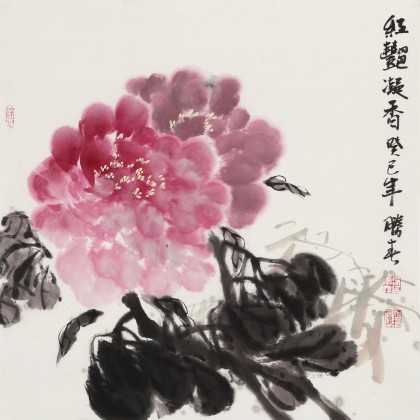 紅豔凝香癸巳年勝春